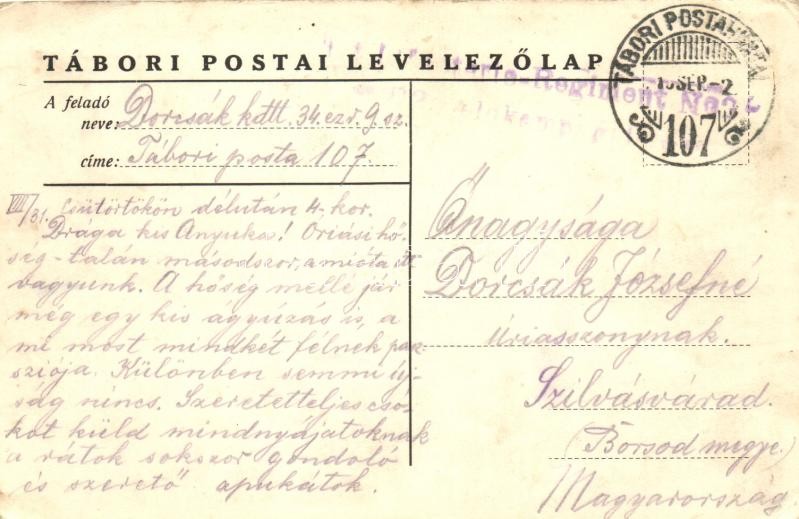 TÁBORI POSTAI LEVELEZŐLAP
A feladó
neve: Dorcsák kdtt. 34. ezr. 9. sz.
címe: Tábori posta 107.
TÁBORI POSTAHIVATAL
SEP. -2
107
Infanterie-Regiment No 34
VIII/31. Csütörtökön délután 4-kor.
Drága kis Anyuka! Óriási hő-
ség - talán másodszor, amióta itt
vagyunk. A hőség mellé jár
még egy kis ágyúzás is, a
mi most mindkét félnek pas-
sziója. Különben semmi uj-
ság nincs. Szeretetteljes csó-
kot küld mindnyájatoknak
a rátok sokszor gondoló
és szerető apukátok.
Őnagysága
Dorcsák Józsefné
úriasszonynak.
Szilvásvárad.
(Borsod megye.)
Magyarország